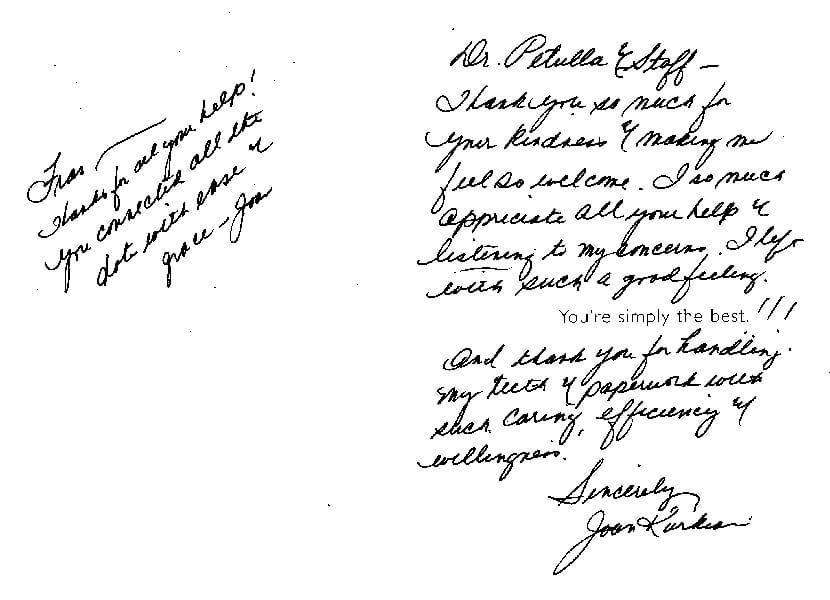 Fran —
Thanks for all your help!
You connected all the
dots with ease &
grace — Joan
Dr. Petulla & Staff —
Thank you so much for
your kindness & making me
feel so welcome. I so much
appreciate all your help &
listening to my concerns. I left
with such a good feeling.
You're simply the best. !!!
And thank you for handling
my teeth & paperwork with
such caring, efficiency &
willingness.
Sincerely
Joan